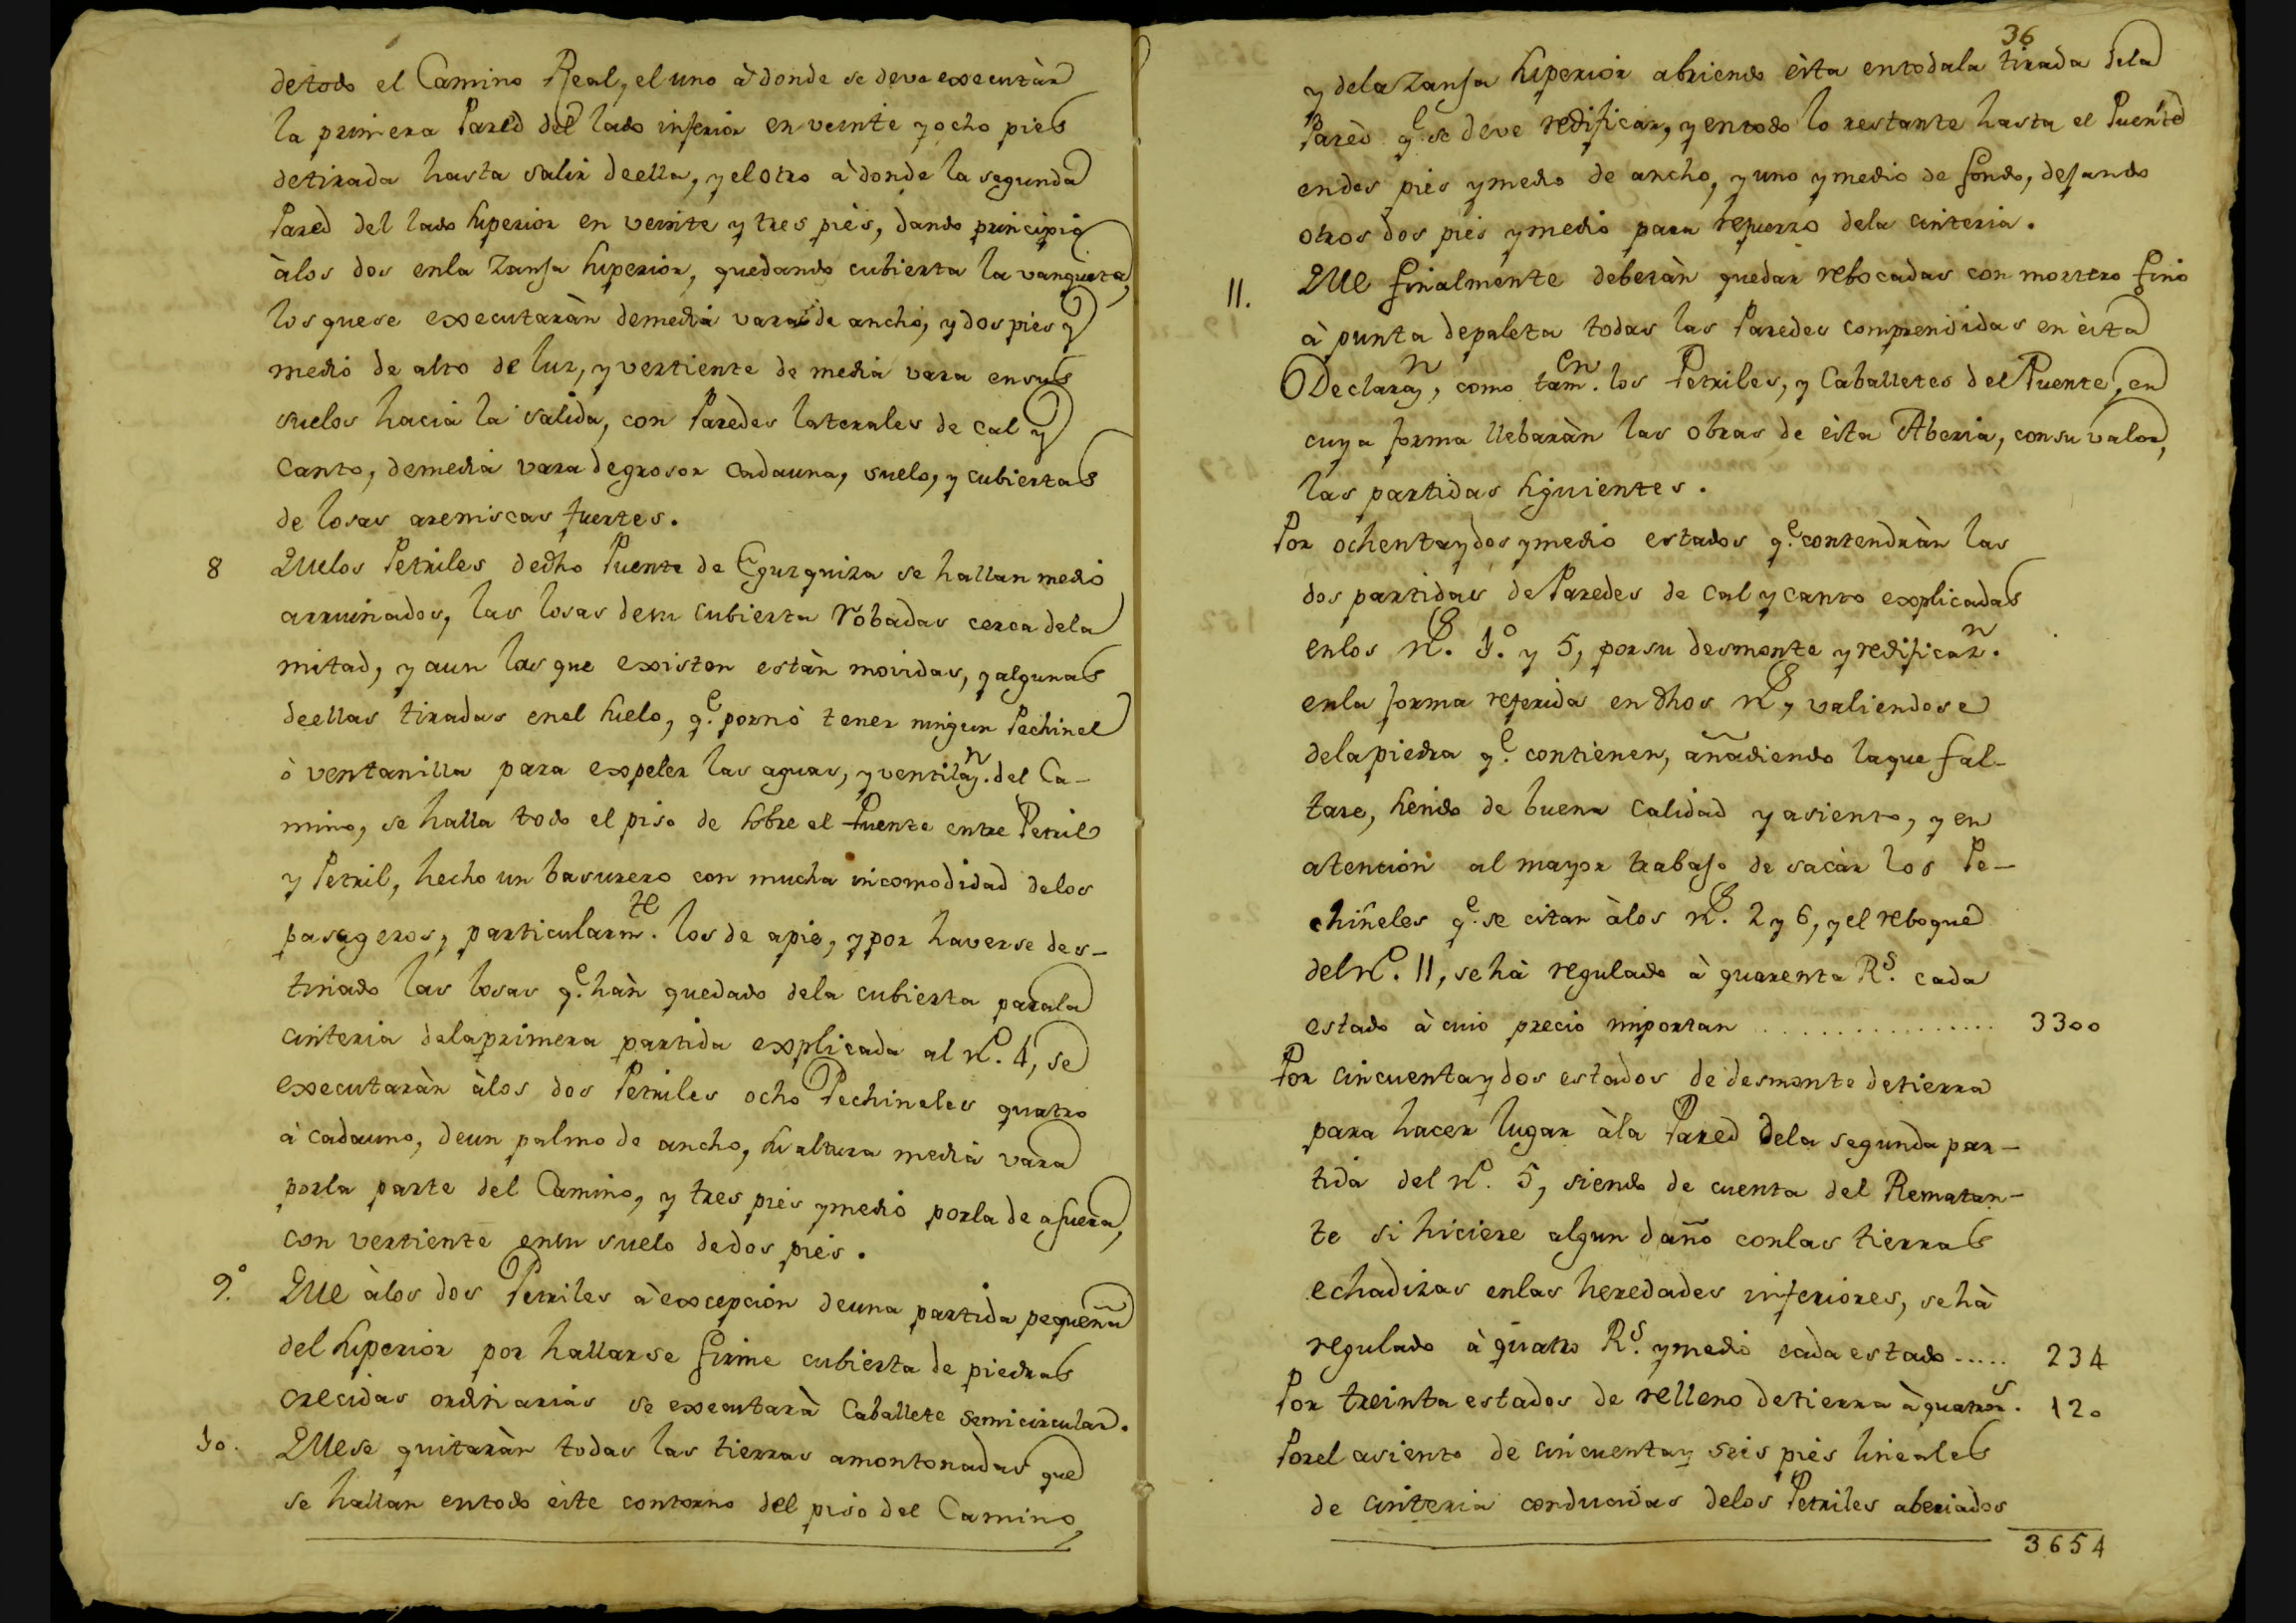 detodo el Camino Real, el uno à donde se deve executàr
la primera Pared del lado inferior en veinte y ocho pies
detirada hasta salir deella, y el otro à donde la segunda
Pared del lado superior en veinte y tres piès, dando principio
àlos dos enla Zanja superior, quedando cubierta la vanqueta,
los quese executaràn demedia vara de ancho, y dos pies y
medio de alto de luz, y vertiente de media vara ensus
suelos hacia la salida, con Paredes laterales de Cal y
Canto, demedia vara degrosor cadauna, suelo, y cubiertas
de losas areniscas fuertes.
8 Quelos Petriles dedho Puente de Egurquiza se hallan medio
arruinados, las losas desu cubierta robadas cerca dela
mitad, y aun las que existen estàn movidas, y algunas
deellas tiradas enel suelo, q.e pornò tener ningun Pechinel
ò ventanilla para expeler las aguas, y ventilaz.n del Ca-
mino, se halla todo el piso de sobre el Puente entre Petril
y Petril, hecho un basurero con mucha incomodidad delos
pasageros, particularm.te los de apie, y por haverse des-
tinado las losas q.e hàn quedado dela cubierta parala
cinteria delaprimera partida explicada al n.o 4, se
executaràn àlos dos Petriles ocho Pechineles quatro
à cadauno, deun palmo de ancho, su altura media vara
porla parte del Camino, y tres pies ymedio porla de afuera,
con vertiente ensu suelo dedos pies.
9.o Que àlos dos Petriles à excepcion deuna partida pequeña
del superior por hallarse firme cubierta de piedras
crecidas ordinarias se executarà Caballete semicircular.
10. Quese quitaràn todas las tierras amontonadas que
se hallan entodo èste contorno del piso del Camino,
36
y dela Zanja superior abriendo èsta entodala tirada dela
Pared q.e se deve redificar, y entodo lo restante hasta el Puente
endos pies ymedio de ancho, y uno ymedio de fondo, dejando
otros dos pies ymedio para refuerzo dela cinteria.
11. Que finalmente deberàn quedar rebocadas con mortero fino
à punta depaleta todas las Paredes comprendidas en èsta
Declaraz.n, como tam.en los Petriles, y Caballetes del Puente, en
cuya forma llebaràn las obras de èsta Aberia, consu valor,
las partidas siguientes.
Por ochentaydos ymedio estados q.e contendràn las
dos partidas de Paredes de Cal y Canto explicadas
enlos n.s 1.o y 5, porsu desmonte y redificaz.n
enla forma referida endhos n.s, valiendose
delapiedra q.e contienen, añadiendo laque fal-
tare, siendo de buena calidad y asiento, y en
atencion al mayor trabajo de sacàr los Pe-
chineles q.e se citan àlos n.s 2 y 6, y el reboque
del n.o 11, sehà regulado à quarenta R.s cada
estado à cuio precio importan ................ 3300
Por cincuentaydos estados de desmonte detierra
para hacer lugar àla Pared dela segunda par-
tida del n.o 5, siendo de cuenta del Rematan-
te si hiciere algun daño conlas tierras
echadizas enlas heredades inferiores, sehà
regulado à quatro R.s ymedio cada estado ..... 234
Por treinta estados de relleno detierra à quatror.s 120
Porel asiento de cincuentay seis pies lineales
de cinteria conducidas delos Petriles aberiados
3654